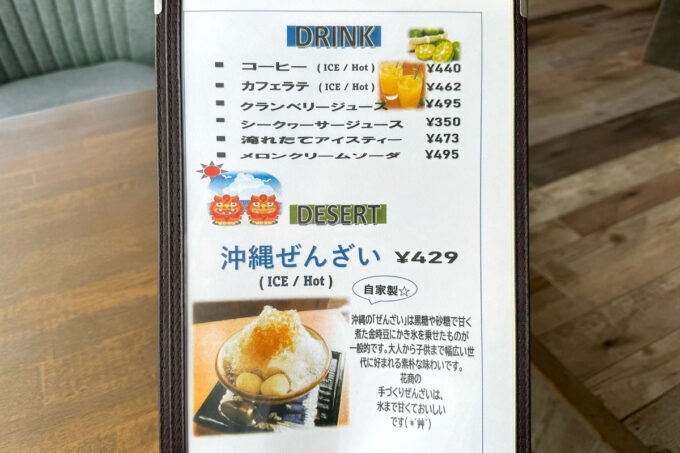 DRINK
コーヒー (ICE / Hot) ¥440
カフェラテ (ICE / Hot) ¥462
クランベリージュース ¥495
シークヮーサージュース ¥350
淹れたてアイスティー ¥473
メロンクリームソーダ ¥495
DESERT
沖縄ぜんざい ¥429
(ICE / Hot)
自家製☆
沖縄の「ぜんざい」は黒糖や砂糖で甘く
煮た金時豆にかき氷を乗せたものが
一般的です。大人から子供まで幅広い世
代に好まれる素朴な味わいです。
花商の
手づくりぜんざいは、
氷まで甘くておいしい
です(*´艸`)